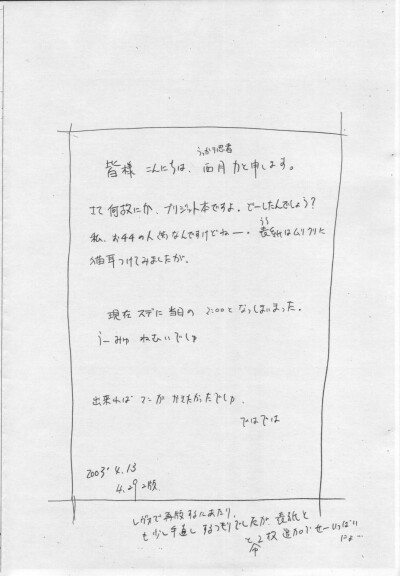 うっかり忍者
皆様 こんにちは、西月 力と申します。
さて何故にか、ブリジット本ですよ。どーしたんでしょう?
うう
私、お44の人なんですけどねー。表紙はムリクリに
猫耳つけてみましたが。
現在 スデに当日の 2:00と なってしまいました。
うーみゅ ねむいでしゅ
出来れば マンガ かきたかったでしゅ。
ではでは
2003' 4.13
4.29 2版.
レヴォで再版するにあたり、
もう少し手直しするつもりでしたが 表紙と
と2枚 追加でせーいっぱい